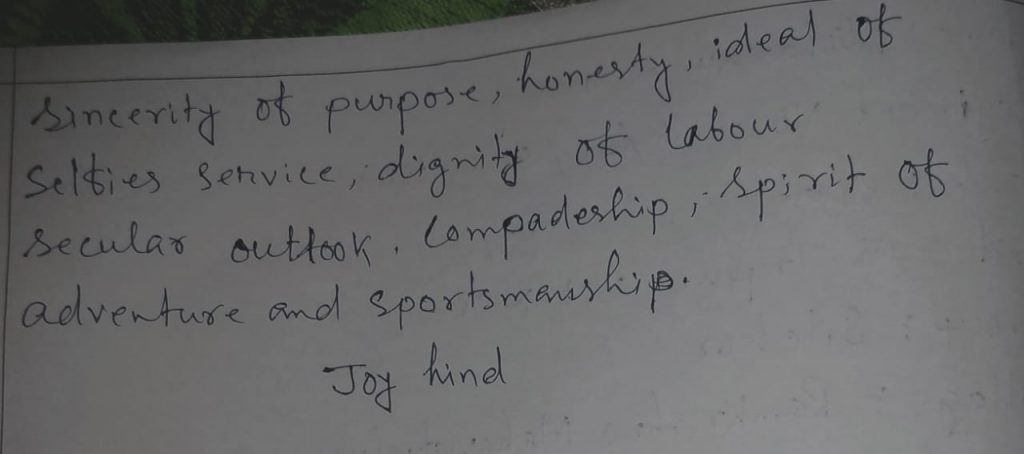 Sincerity of purpose, honesty, ideal of
Selfies service, dignity of labour
Secular outlook, Compadeship, Spirit of
adventure and sportsmanship.
Joy hind